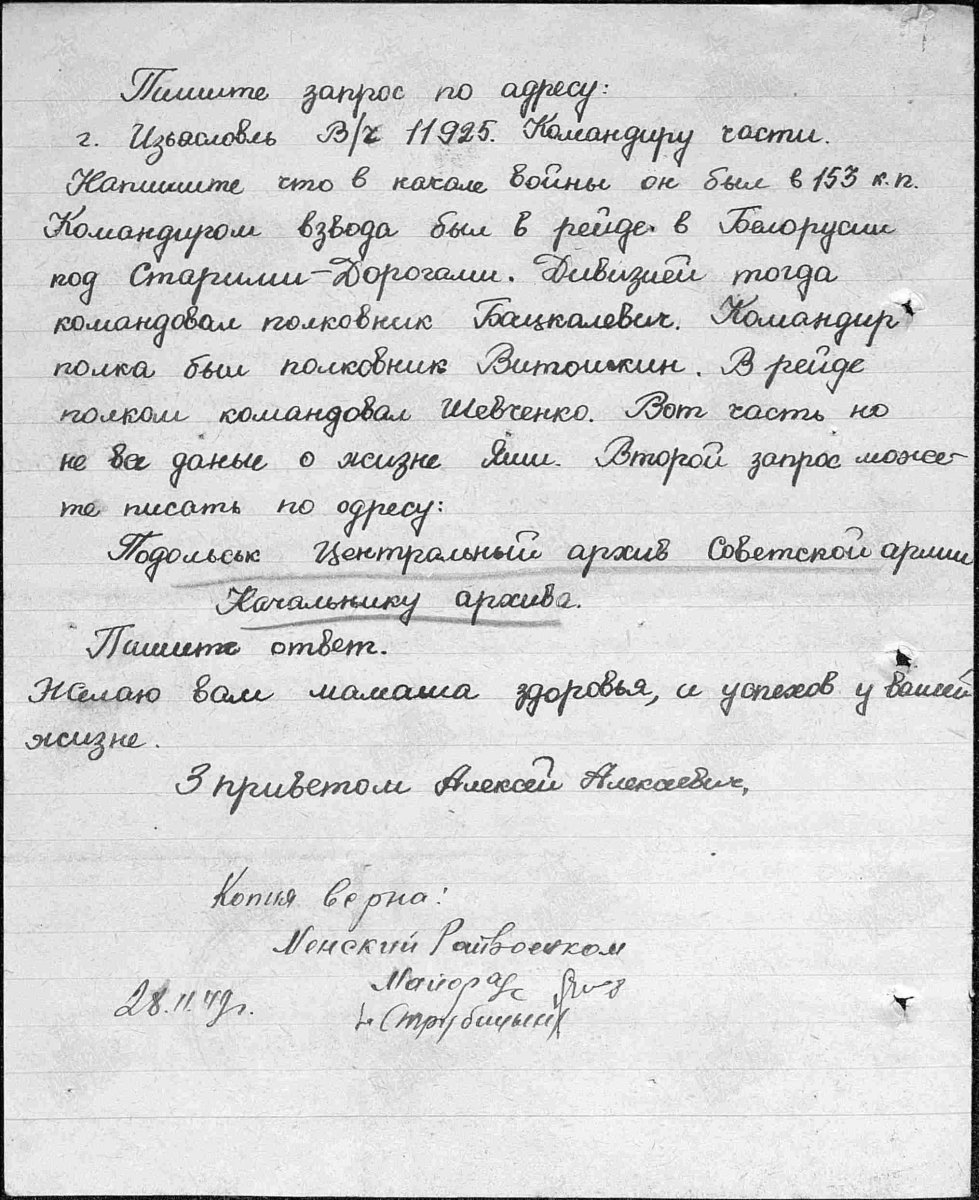 Пишите запрос по адресу:
г. Изьасловль В/ч 11925. Командиру части.
Напишите что в начале войны он был в 153 к.п.
Командиром взвода был в рейде в Белорусии
под Старими-Дорогами. Дивизией тогда
командовал полковник Бацкалевич. Командир
полка был полковник Витошкин. В рейде
полком командовал Шевченко. Вот часть но
не все даные о жизне Яши. Второй запрос може-
те писать по адресу:
Подольськ Центральный архив Советской армии
Начальнику архива.
Пишите ответ.
Желаю вам мамаша здоровья, и успехов у вашей
жизне.
З приветом Алексей Алексеевич,
Копия верна:
Менский Райвоенком
Майор
28.11.49г.
Струбицый